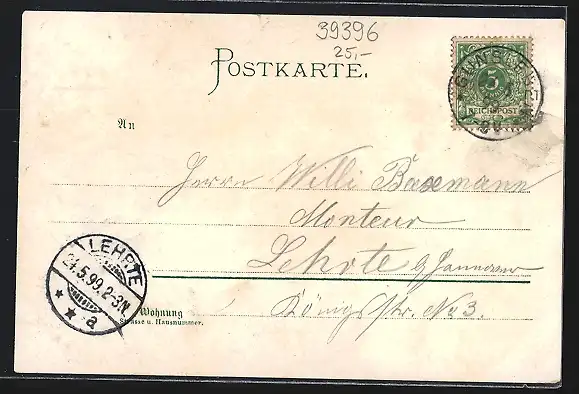 39396
25,-
POSTKARTE.
5
REICHSPOST
An
Herrn Willi Basemann
Monteur
Lehrte b/ Hannover
LEHRTE
24.5.98.2-3N.
* * a
Wohnung
Strasse u. Hausnummer.
Königstr. No 3.